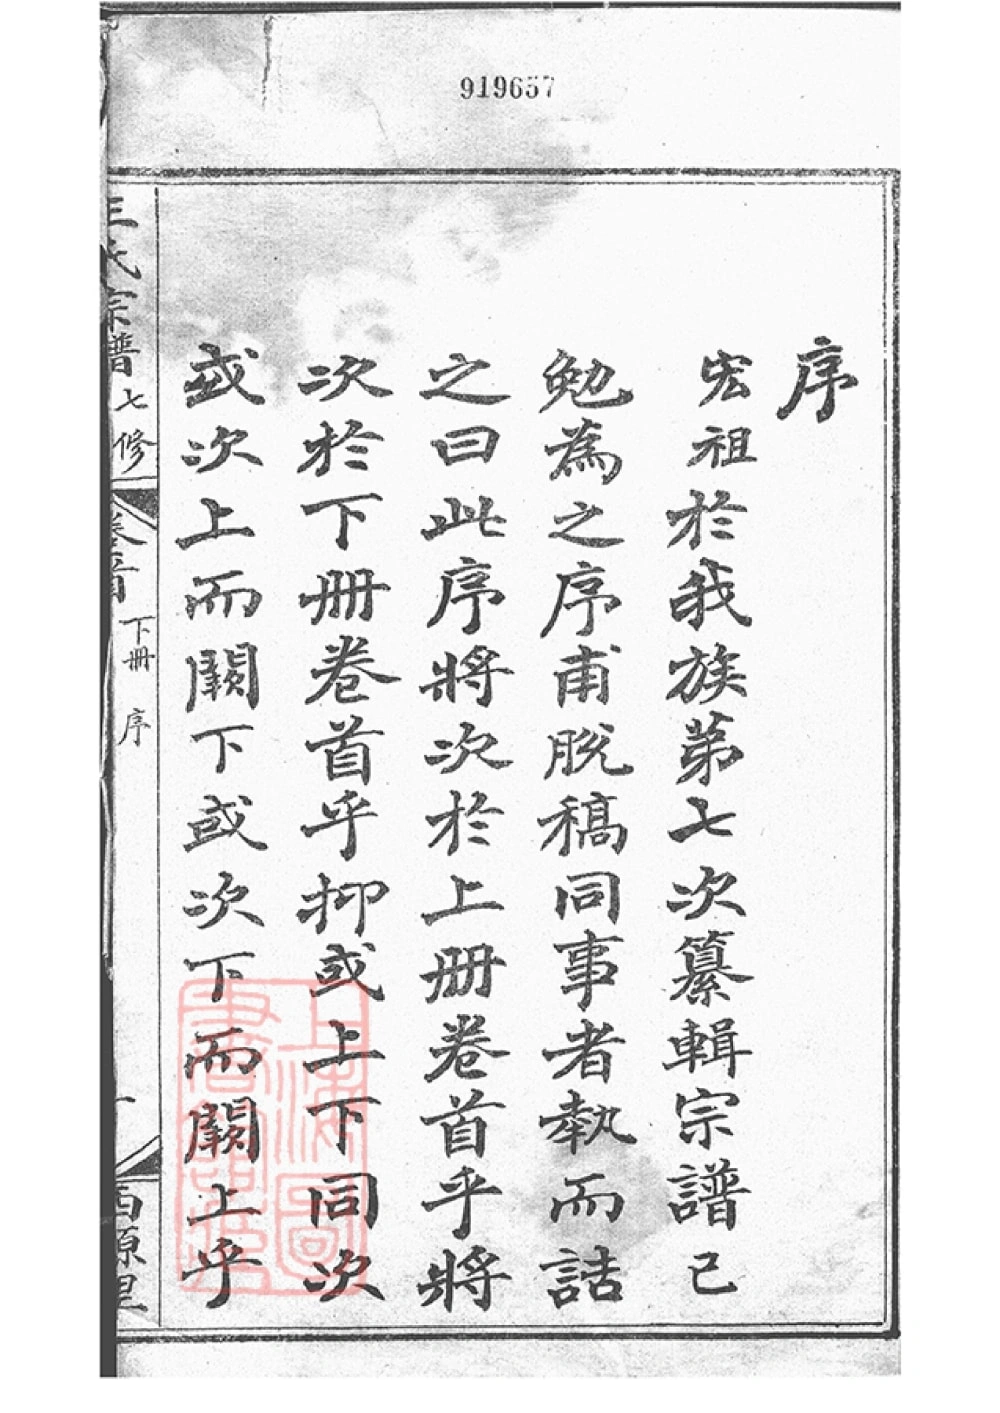 919657
序
宏祖於我族第七次纂輯宗譜已
勉為之序甫脫稿同事者執而詰
之曰此序將次於上册卷首乎將
次於下册卷首乎抑或上下同次
或次上而闕下或次下而闕上乎
王氏宗譜七修
卷首
下册
序
一
西原里
上海圖書館藏